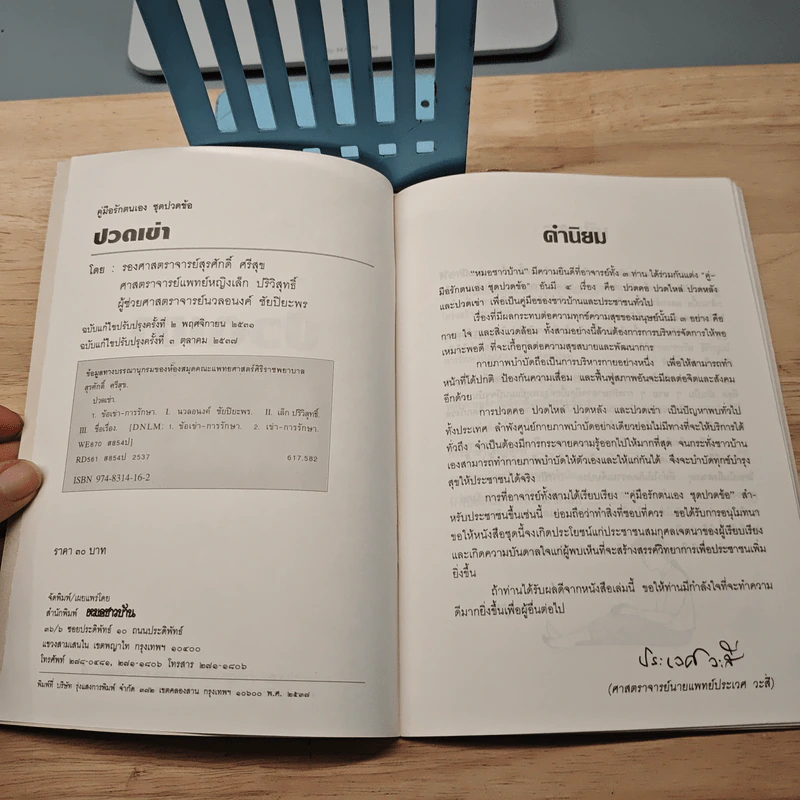 คู่มือรักตนเอง ชุดปวดข้อ
ปวดเข่า
โดย : รองศาสตราจารย์สุรศักดิ์ ศรีสุข
ศาสตราจารย์แพทย์หญิงเล็ก ปริวิสุทธิ์
ผู้ช่วยศาสตราจารย์นวลอนงค์ ชัยปิยะพร
ฉบับแก้ไขปรับปรุงครั้งที่ ๒ พฤศจิกายน ๒๕๓๑
ฉบับแก้ไขปรับปรุงครั้งที่ ๓ ตุลาคม ๒๕๓๗
ข้อมูลทางบรรณานุกรมของห้องสมุดคณะแพทยศาสตร์ศิริราชพยาบาล
สุรศักดิ์ ศรีสุข.
ปวดเข่า.
1. ข้อเข่า-การรักษา. I. นวลอนงค์ ชัยปิยะพร. II. เล็ก ปริวิสุทธิ์.
III. ชื่อเรื่อง. [DNLM: 1. ข้อเข่า-การรักษา. 2. เข่า-การรักษา.
WE870 ส854ป]
RD561 ส854ป 2537 617.582
ISBN 974-8314-16-2
ราคา ๓๐ บาท
จัดพิมพ์/เผยแพร่โดย
สำนักพิมพ์ หมอชาวบ้าน
๓๖/๖ ซอยประดิพัทธ์ ๑๐ ถนนประดิพัทธ์
แขวงสามเสนใน เขตพญาไท กรุงเทพฯ ๑๐๔๐๐
โทรศัพท์ ๒๗๘-๐๔๘๑, ๒๗๑-๑๘๐๖ โทรสาร ๒๗๑-๑๘๐๖
พิมพ์ที่ บริษัท รุ่งแสงการพิมพ์ จำกัด ๓๘๒ เขตคลองสาน กรุงเทพฯ ๑๐๖๐๐ พ.ศ. ๒๕๓๗
คำนิยม
"หมอชาวบ้าน" มีความยินดีที่อาจารย์ทั้ง ๓ ท่าน ได้ร่วมกันแต่ง "คู่-
มือรักตนเอง ชุดปวดข้อ" อันมี ๔ เรื่อง คือ ปวดคอ ปวดไหล่ ปวดหลัง
และปวดเข่า เพื่อเป็นคู่มือของชาวบ้านและประชาชนทั่วไป
เรื่องที่มีผลกระทบต่อความทุกข์ความสุขของมนุษย์นั้นมี ๓ อย่าง คือ
กาย ใจ และสิ่งแวดล้อม ทั้งสามอย่างนี้ล้วนต้องการการบริหารจัดการให้พอ
เหมาะพอดี ที่จะเกื้อกูลต่อความสุขสบายและพัฒนาการ
กายภาพบำบัดถือเป็นการบริหารกายอย่างหนึ่ง เพื่อให้สามารถทำ
หน้าที่ได้ปกติ ป้องกันความเสื่อม และฟื้นฟูสภาพอันจะมีผลต่อจิตและสังคม
อีกด้วย
การปวดคอ ปวดไหล่ ปวดหลัง และปวดเข่า เป็นปัญหาพบทั่วไป
ทั้งประเทศ ลำพังศูนย์กายภาพบำบัดอย่างเดียวย่อมไม่มีทางที่จะให้บริการได้
ทั่วถึง จำเป็นต้องมีการกระจายความรู้ออกไปให้มากที่สุด จนกระทั่งชาวบ้าน
เองสามารถทำกายภาพบำบัดให้ตัวเองและให้แก่กันได้ จึงจะบำบัดทุกข์บำรุง
สุขให้ประชาชนได้จริง
การที่อาจารย์ทั้งสามได้เรียบเรียง "คู่มือรักตนเอง ชุดปวดข้อ" สำ-
หรับประชาชนขึ้นเช่นนี้ ย่อมถือว่าทำสิ่งที่ชอบที่ควร ขอได้รับการอนุโมทนา
ขอให้หนังสือชุดนี้จงเกิดประโยชน์แก่ประชาชนสมกุศลเจตนาของผู้เรียบเรียง
และเกิดความบันดาลใจแก่ผู้พบเห็นที่จะสร้างสรรค์วิทยาการเพื่อประชาชนเพิ่ม
ยิ่งขึ้น
ถ้าท่านได้รับผลดีจากหนังสือเล่มนี้ ขอให้ท่านมีกำลังใจที่จะทำความ
ดีมากยิ่งขึ้นเพื่อผู้อื่นต่อไป
ประเวศ วะสี
(ศาสตราจารย์นายแพทย์ประเวศ วะสี)